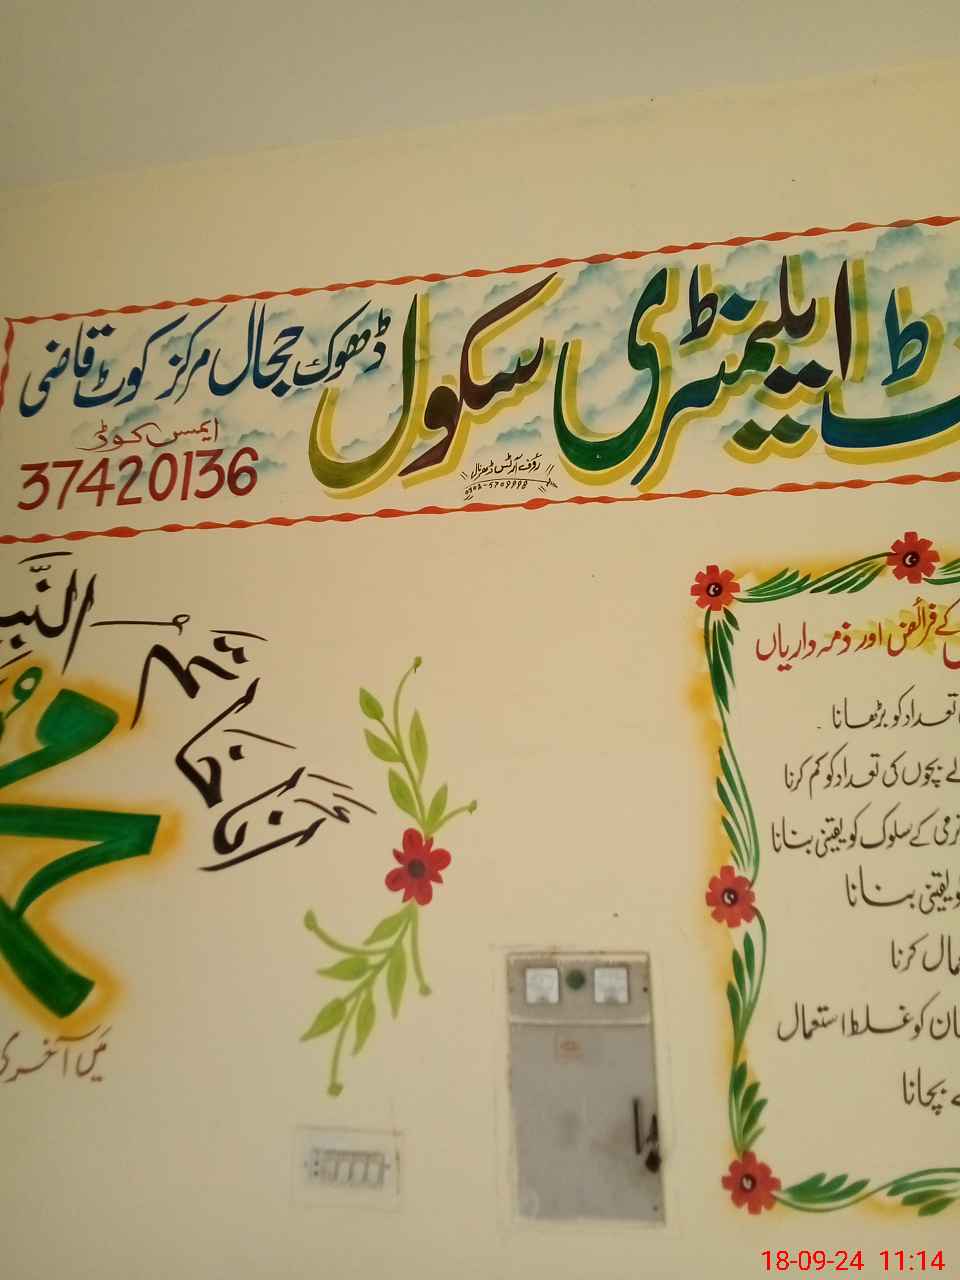 ایلیمنٹری سکول ڈھوک ججال مرکز کوٹ قاضی
ایمس کوڈ
37420136
رؤف آرٹس ڈھرنال
النب
کے فرائض اور ذمہ داریاں
تعداد کو بڑھانا
بچوں کی تعداد کو کم کرنا
نرمی کے سلوک کو یقینی بنانا
یقینی بنانا
کرنا
کو غلط استعمال
بچانا
میں آخری
18-09-24 11:14